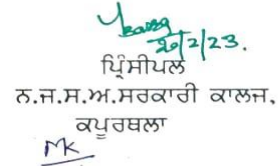 20/2/23.
ਪ੍ਰਿੰਸੀਪਲ
ਨ.ਜ.ਸ.ਅ.ਸਰਕਾਰੀ ਕਾਲਜ,
ਕਪੂਰਥਲਾ
MK